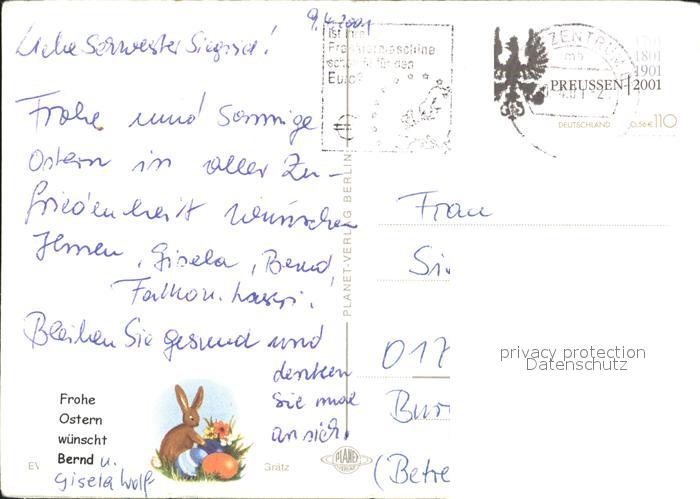 9.4.2001
Liebe Schwester Siegrid!
Frohe und Sonnige
Ostern in aller Zu-
friedenheit wünschen
Ihnen, Gisela, Bernd,
Bleiben Sie gesund und
denken
Sie mal
an sich.
Frohe
Ostern
wünscht
Bernd u.
Gisela Wolf
Grätz
PLANET-VERLAG BERLIN
PLANET
Ist Ihre
Frankiermaschine
schon fit für den
Euro?
ZENTRUM
mb
1701
1801
1901
PREUSSEN 2001
DEUTSCHLAND 0,56€ 110
Frau
Si
017
Bur
(Betre
privacy protection
Datenschutz